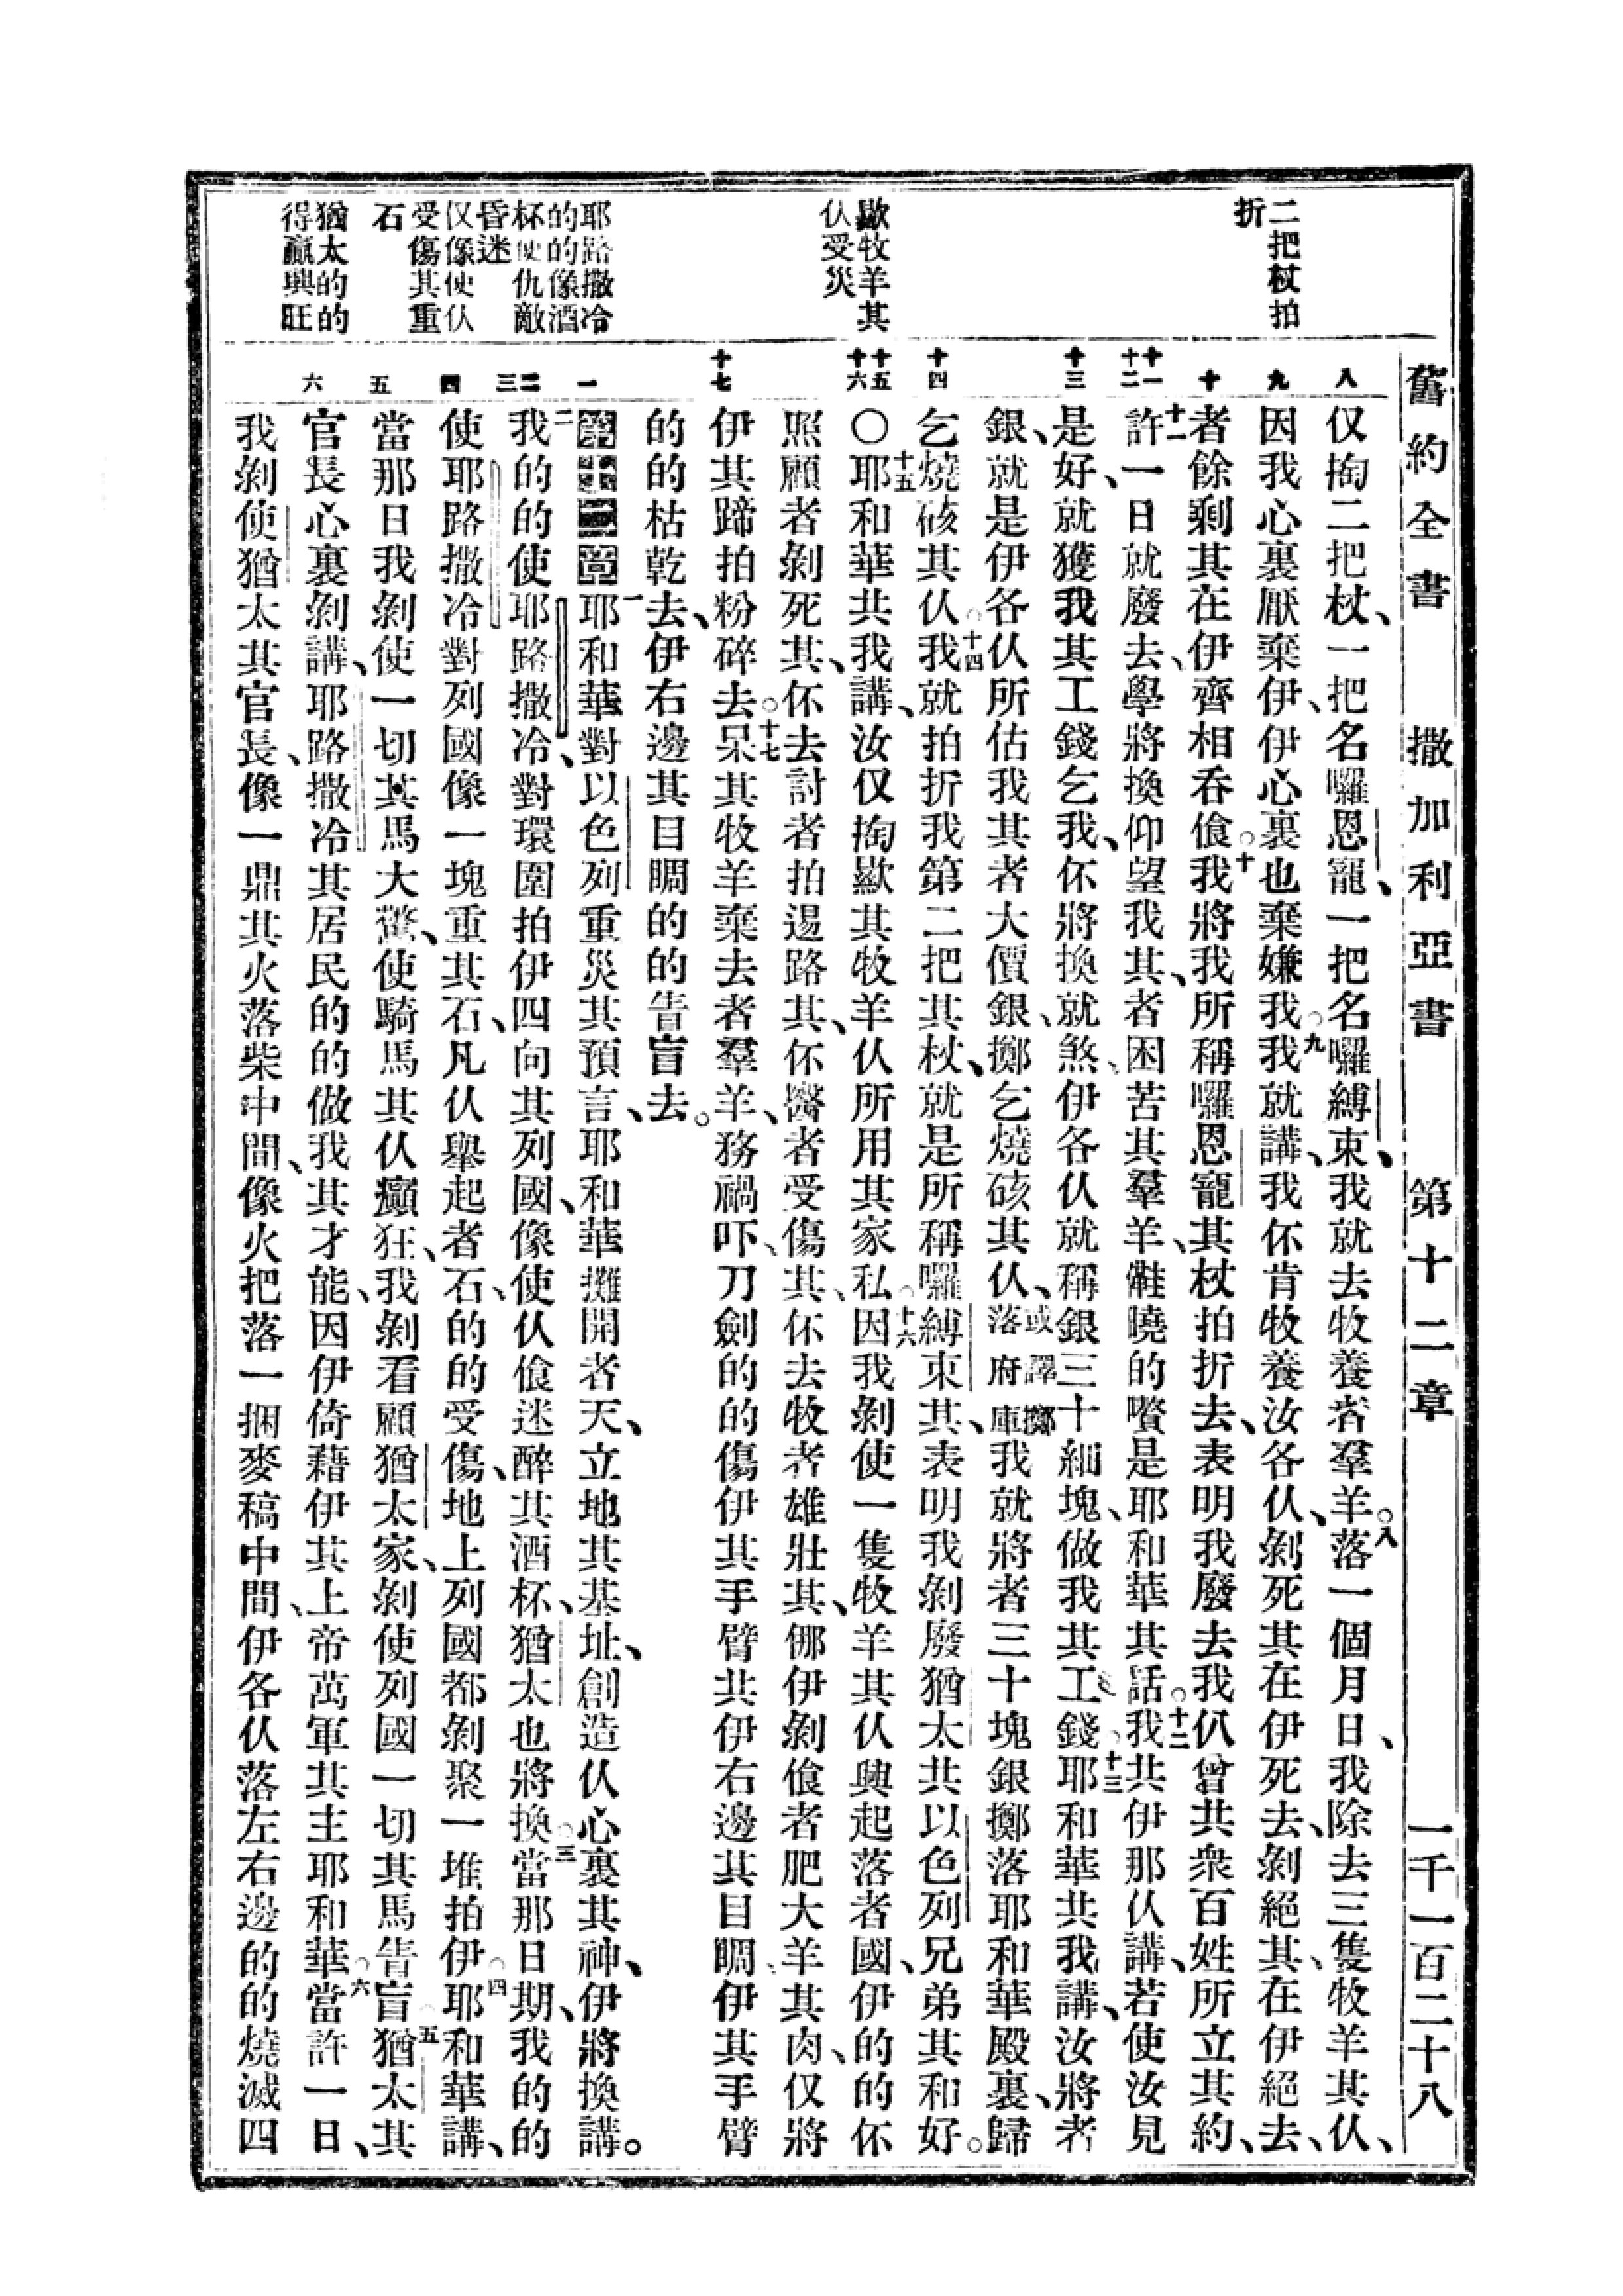 舊約全書　撒加利亞書　第十二章　一千一百二十八
二把杖拍
折
歉牧羊其
仈受災
耶路撒冷
的的像酒
杯使仇敵
昏迷
仅像使仈
受傷其重
石
猶太的的
得贏興旺
八
九
十
十一
十二
十三
十四
十五
十六
十七
一
二
三
四
五
六
仅掏二把杖、一把名囉恩寵、一把名囉縛束、我就去牧養者羣羊。八落一個月日、我除去三隻牧羊其仈、
因我心裏厭棄伊、伊心裏也棄嫌我。九我就講、我伓肯牧養汝各仈、剝死其在伊死去、剝絕其、在伊絕去、
者餘剩其在伊齊相吞飡。十我將我所稱囉恩寵其杖拍折去、表明我廢去我仈曾共衆百姓所立其約、
十一許一日就廢去、學將換仰望我其、者困苦其羣羊、㑚曉的喀是耶和華其話。十二我共伊那仈講、若使汝見
是好、就獲我其工錢乞我、伓將換就煞、伊各仈就稱銀三十細塊、做我其工錢。十三耶和華共我講、汝將者
銀、就是伊各仈所估我其者大價銀、擲乞燒硋其仈、或譯擲落府庫我就將者三十塊銀擲落耶和華殿裏、歸
乞燒硋其仈。十四我就拍折我第二把其杖、就是所稱囉縛束其、表明我剝廢猶太共以色列兄弟其和好。
〇十五耶和華共我講、汝仅掏歉其牧羊仈所用其家私。十六因我剝使一隻牧羊其仈興起落者國、伊的的伓
照顧者剝死其、伓去討者拍逿路其、伓醫者受傷其、伓去牧者雄壯其、倻伊剝飡者肥大羊其肉、仅將
伊其蹄拍粉碎去。十七呆其牧羊棄去者羣羊、務禍吓、刀劍的的傷伊其手臂共伊右邊其目睭、伊其手臂
的的枯乾去、伊右邊其目睭的的眚盲去。
第十二章一耶和華對以色列重災其預言、耶和華攤開者天、立地其基址、創造仈心裏其神、伊將換講。
二我的的使耶路撒冷、對環圍拍伊四向其列國、像使仈飡迷醉其酒杯、猶太也將換。三當那日期、我的的
使耶路撒冷對列國像一塊重其石、凡仈舉起者石、的的受傷、地上列國都剝聚一堆拍伊。四耶和華講、
當那日我剝使一切其馬大驚、使騎馬其仈癲狂、我剝看顧猶太家、剝使列國一切其馬眚盲。五猶太其
官長心裏剝講、耶路撒冷其居民的的做我其才能、因伊倚藉伊其上帝萬軍其主耶和華。六當許一日、
我剝使猶太其官長、像一鼎其火落柴中間、像火把落一捆麥稿中間、伊各仈落左右邊的的燒滅四